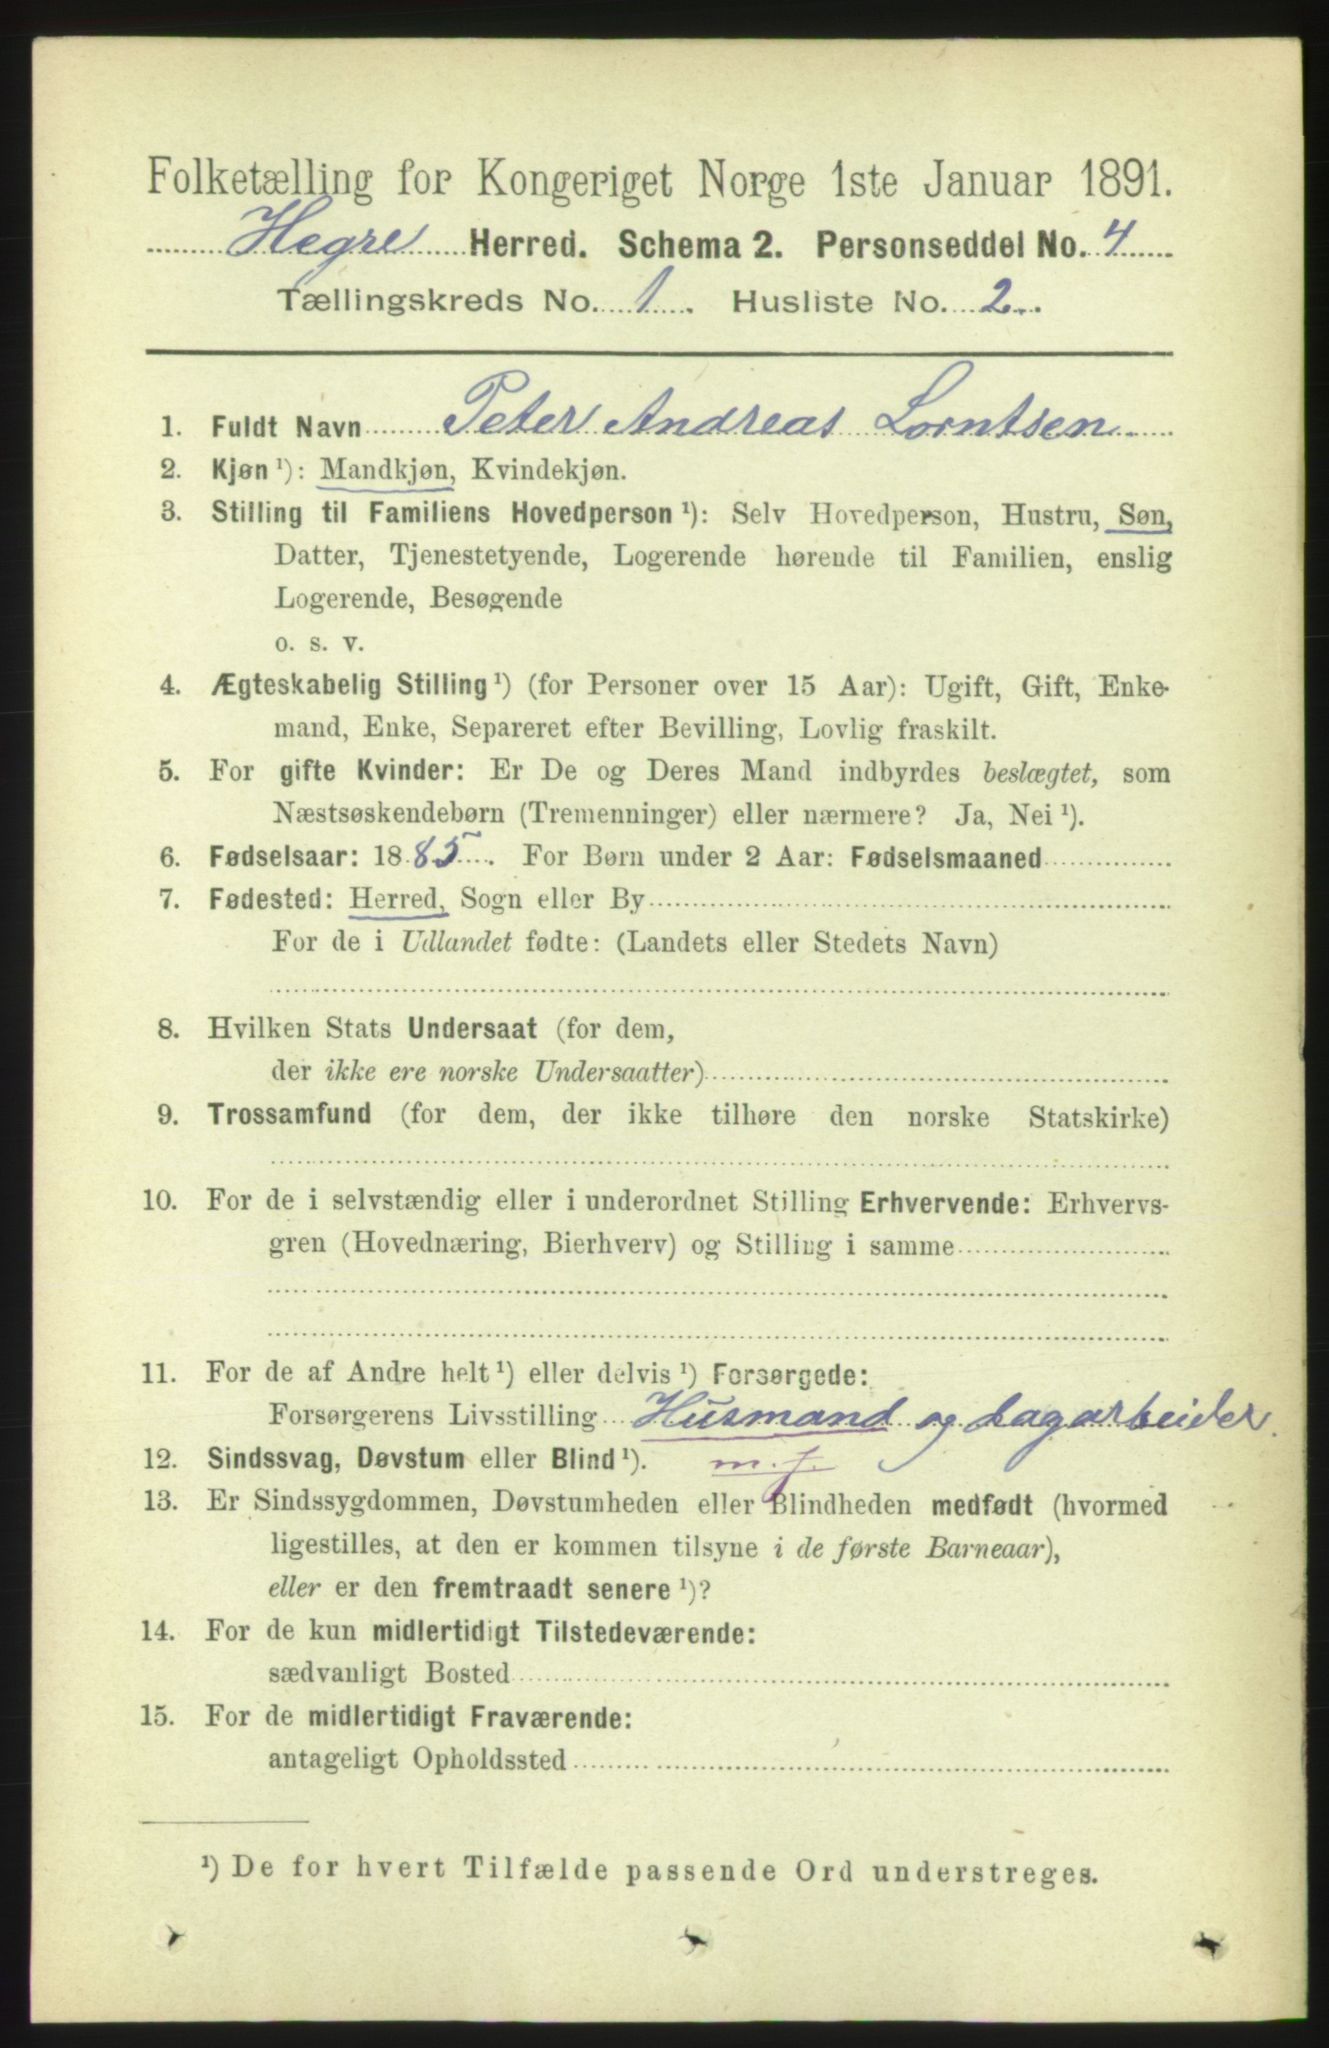 Folketælling for Kongeriget Norge 1ste Januar 1891.
Hegre Herred. Schema 2. Personseddel No. 4
Tællingskreds No. 1. Husliste No. 2.
1. Fuldt Navn Peter Andreas Lorntsen
2. Kjøn ¹): Mandkjøn, Kvindekjøn.
3. Stilling til Familiens Hovedperson ¹): Selv Hovedperson, Hustru, Søn,
Datter, Tjenestetyende, Logerende hørende til Familien, enslig
Logerende, Besøgende
o. s. v.
4. Ægteskabelig Stilling ¹) (for Personer over 15 Aar): Ugift, Gift, Enke-
mand, Enke, Separeret efter Bevilling, Lovlig fraskilt.
5. For gifte Kvinder: Er De og Deres Mand indbyrdes beslægtet, som
Næstsøskendebørn (Tremenninger) eller nærmere? Ja, Nei ¹).
6. Fødselsaar: 1885. For Børn under 2 Aar: Fødselsmaaned
7. Fødested: Herred, Sogn eller By
For de i Udlandet fødte: (Landets eller Stedets Navn)
8. Hvilken Stats Undersaat (for dem,
der ikke ere norske Undersaatter)
9. Trossamfund (for dem, der ikke tilhøre den norske Statskirke)
10. For de i selvstændig eller i underordnet Stilling Erhvervende: Erhvervs-
gren (Hovednæring, Bierhverv) og Stilling i samme
11. For de af Andre helt ¹) eller delvis ¹) Forsørgede:
Forsørgerens Livsstilling Husmand og dagarbeider.
12. Sindssvag, Døvstum eller Blind ¹). m. j.
13. Er Sindssygdommen, Døvstumheden eller Blindheden medfødt (hvormed
ligestilles, at den er kommen tilsyne i de første Barneaar),
eller er den fremtraadt senere ¹)?
14. For de kun midlertidigt Tilstedeværende:
sædvanligt Bosted
15. For de midlertidigt Fraværende:
antageligt Opholdssted
¹) De for hvert Tilfælde passende Ord understreges.